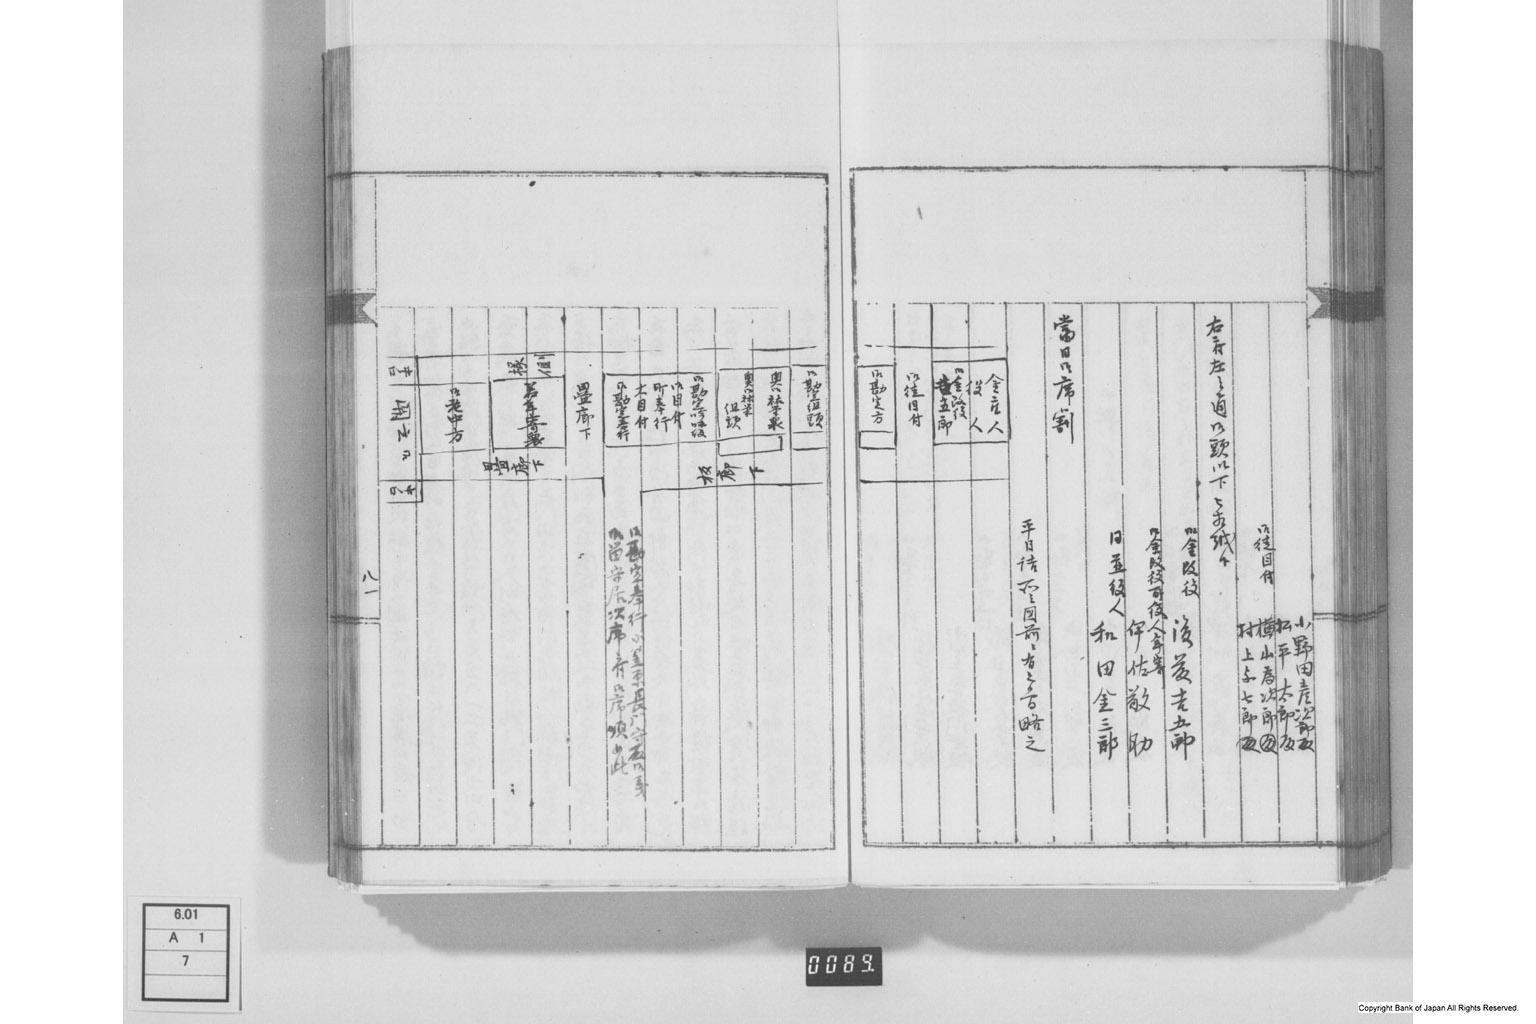 小野田彦次郎殿
松平太郎殿
御徒目付
横山喜次郎殿
村上与七郎殿
右之通御頭以下
御金改役
後藤吉五郎
御金改役所役人
伊佐敬助
日並役人
和田金三郎
當日御席割
平日詰
図前ニ有之ニ付略之
金座人
役人
御金改役
吉五郎
御徒目付
御勘定方
御勘定組頭
奥御祐筆
奥御祐筆
組頭
御勘定吟味役
御目付
町奉行
大目付
御勘定奉行
板廊下
御勘定奉行小笠原長門守殿御義
御留守居次席ニ付御席順如此
畳廊下
若年寄衆
畳廊下
御老中方
八一
6.01
A 1
7
0089
Copyright Bank of Japan All Rights Reserved.